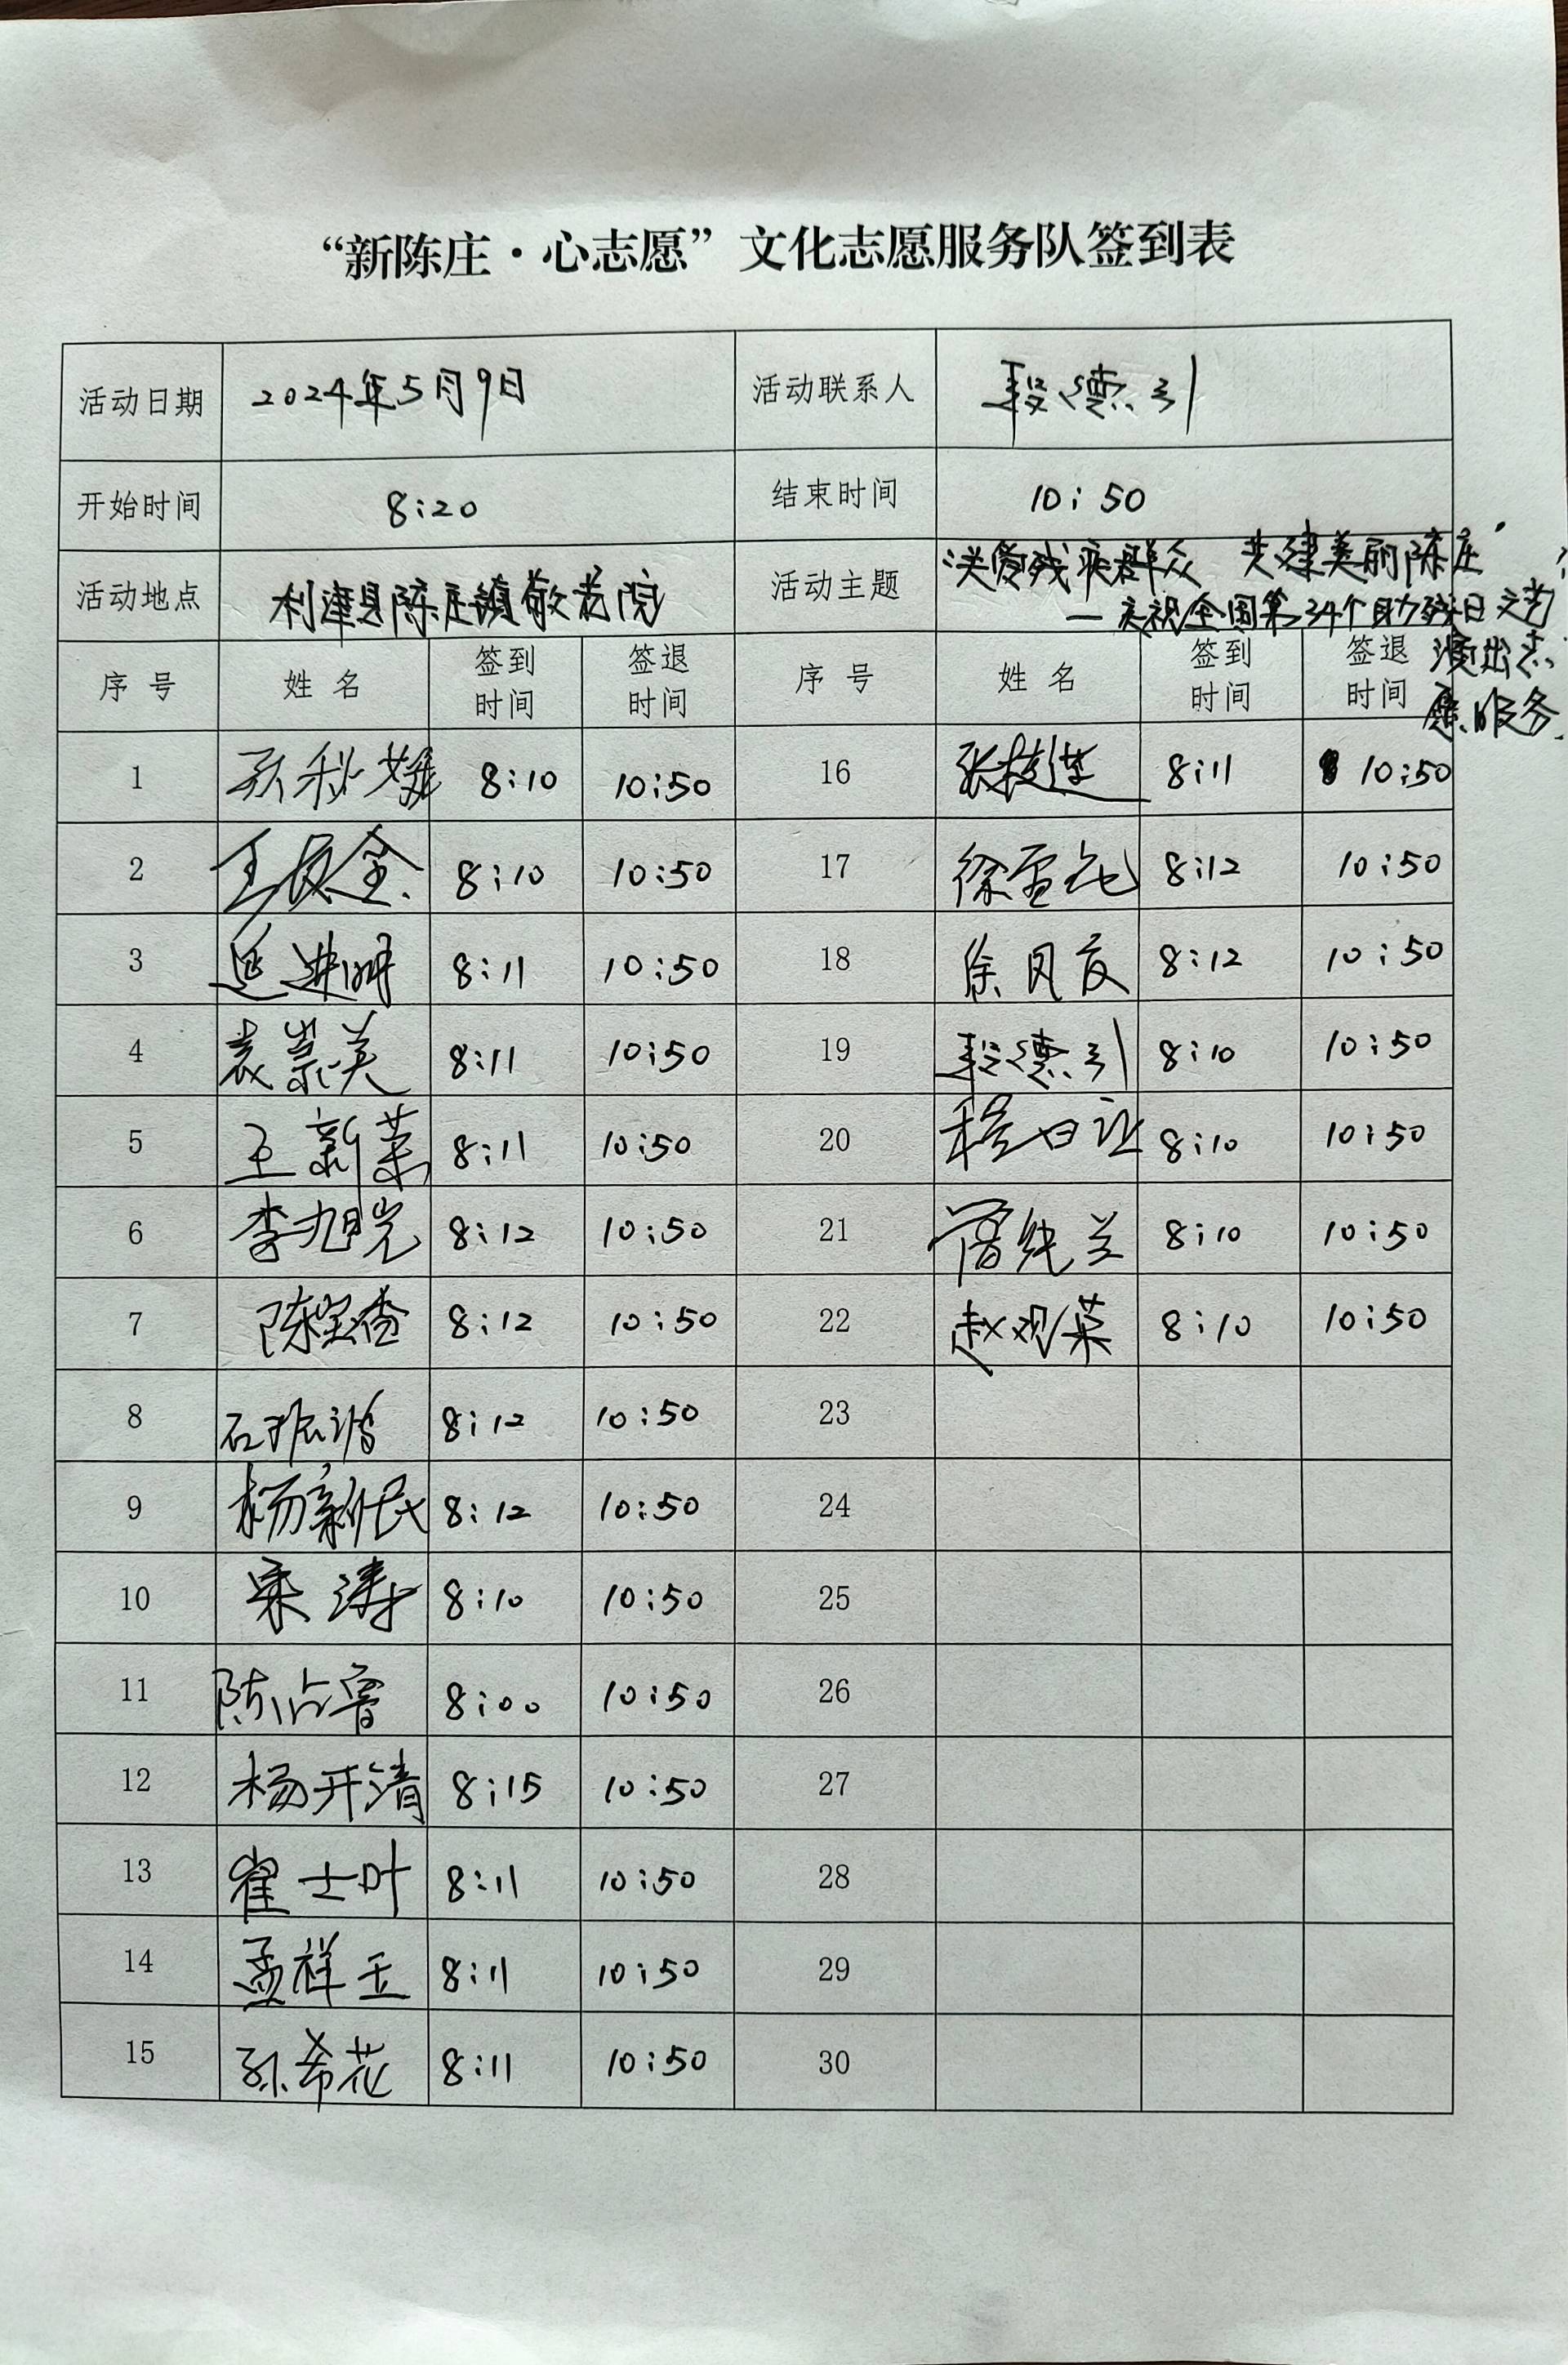 “新陈庄·心志愿”文化志愿服务队签到表
活动日期 2024年5月9日 活动联系人 段德引
开始时间 8:20 结束时间 10:50
活动地点 利津县陈庄镇敬老院 活动主题 关爱残疾群众 共建美丽陈庄
—庆祝全国第34个助残日文艺
演出志
愿服务
序号 姓名 签到时间 签退时间 序号 姓名 签到时间 签退时间
1 8:10 10:50 16 8:11 10:50
2 王友金 8:10 10:50 17 徐雪花 8:12 10:50
3 8:11 10:50 18 徐凤友 8:12 10:50
4 袁崇美 8:11 10:50 19 段德引 8:10 10:50
5 王新菜 8:11 10:50 20 8:10 10:50
6 李旭光 8:12 10:50 21 8:10 10:50
7 陈宝香 8:12 10:50 22 赵观菜 8:10 10:50
8 8:12 10:50 23
9 杨新民 8:12 10:50 24
10 8:10 10:50 25
11 陈占鲁 8:00 10:50 26
12 杨开清 8:15 10:50 27
13 崔士叶 8:11 10:50 28
14 孟祥玉 8:11 10:50 29
15 孙希花 8:11 10:50 30